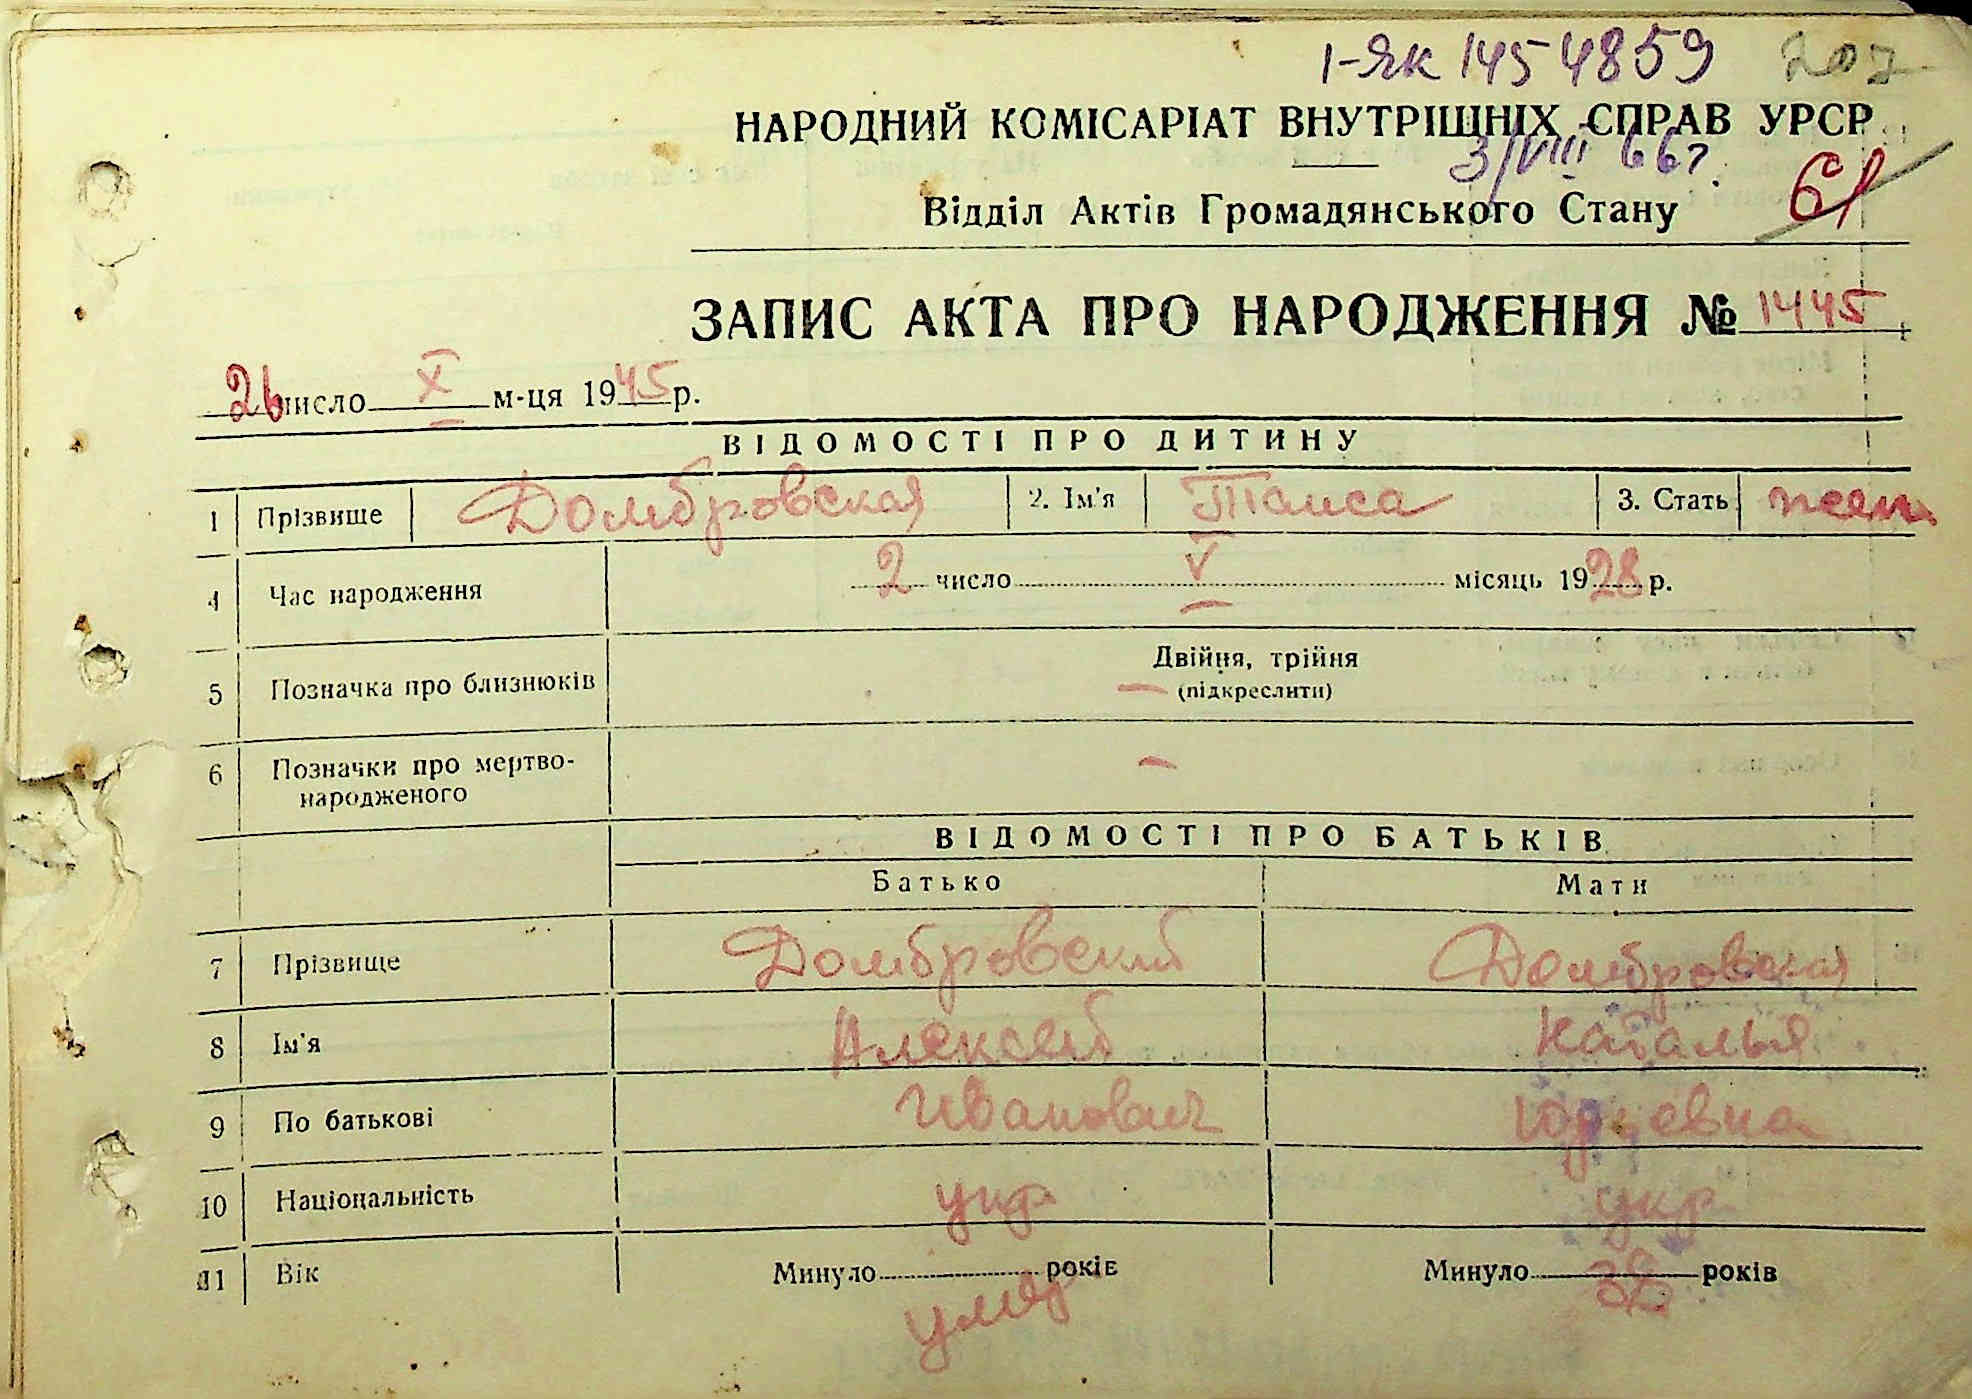 1-ЯК 1454859 207
НАРОДНИЙ КОМІСАРІАТ ВНУТРІШНІХ СПРАВ УРСР
3/VIII 66 г.
Відділ Актів Громадянського Стану 61
ЗАПИС АКТА ПРО НАРОДЖЕННЯ № 1445
26 число X м-ця 1945 р.
ВІДОМОСТІ ПРО ДИТИНУ
1 Прізвище Домбровская 2. Ім'я Таиса 3. Стать жен.
4 Час народження 2 число V місяць 1928 р.
5 Позначка про близнюків Двійня, трійня
— (підкреслити)
6 Позначки про мертво-
народженого —
ВІДОМОСТІ ПРО БАТЬКІВ
Батько Мати
7 Прізвище Домбровский Домбровская
8 Ім'я Алексей Наталья
9 По батькові Иванович Юрьевна
10 Національність укр укр
11 Вік Минуло років Минуло років
умер